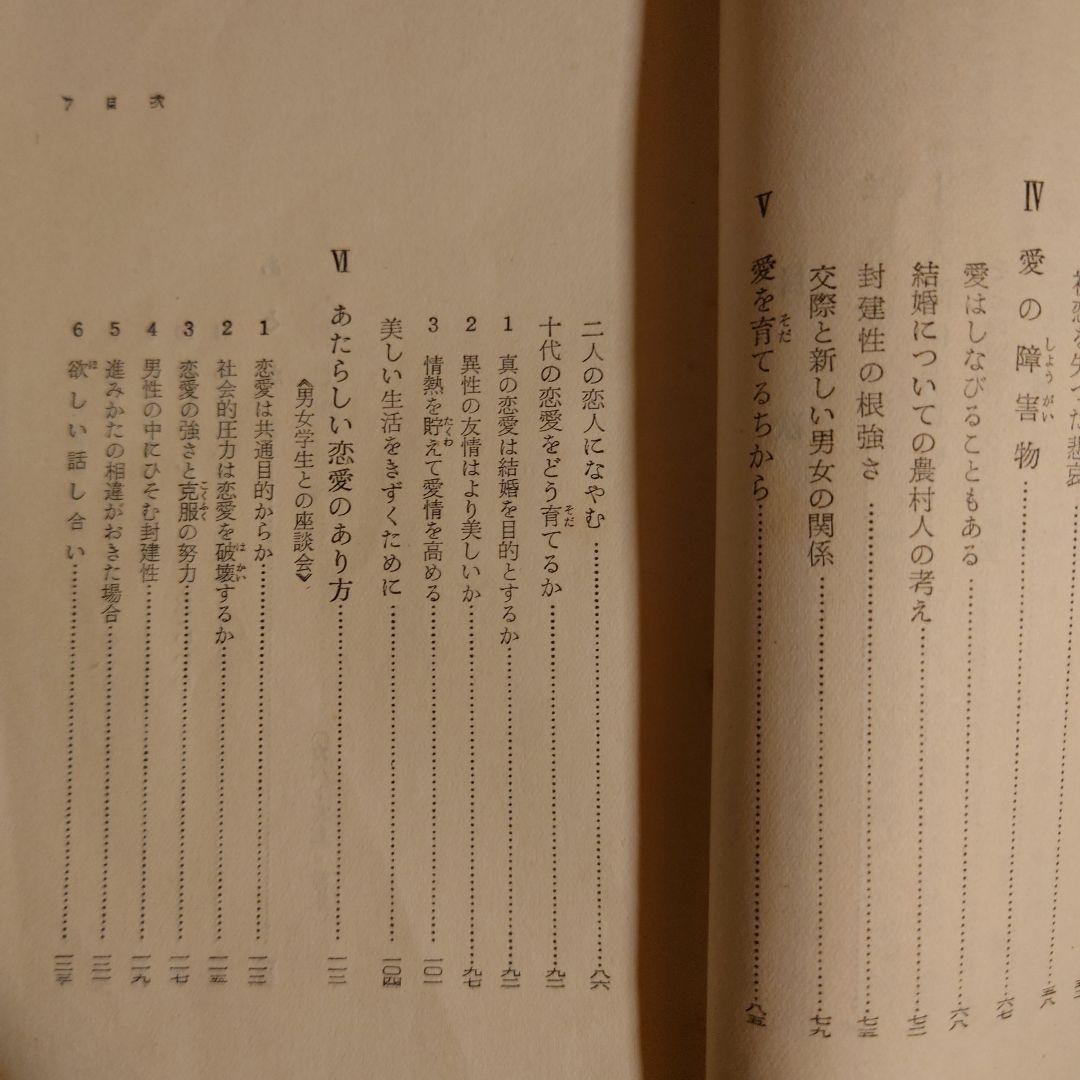 恋を失つた悲哀
Ⅳ 愛の障害物……六七
愛はしなびることもある……六八
結婚についての農村人の考え……七二
封建性の根強さ……七五
交際と新しい男女の関係……七九
Ⅴ 愛を育てるちから……八五
二人の恋人になやむ……八六
十代の恋愛をどう育てるか……九二
1 真の恋愛は結婚を目的とするか……九二
2 異性の友情はより美しいか……九七
3 情熱を貯えて愛情を高める……一〇一
美しい生活をきずくために……一〇四
Ⅵ あたらしい恋愛のあり方……
《男女学生との座談会》
1 恋愛は共通目的からか……
2 社会的圧力は恋愛を破壊するか……一一五
3 恋愛の強さと克服の努力……一一七
4 男性の中にひそむ封建性……一一九
5 進みかたの相違がおきた場合……一二一
6 欲しい話し合い……
7 目次